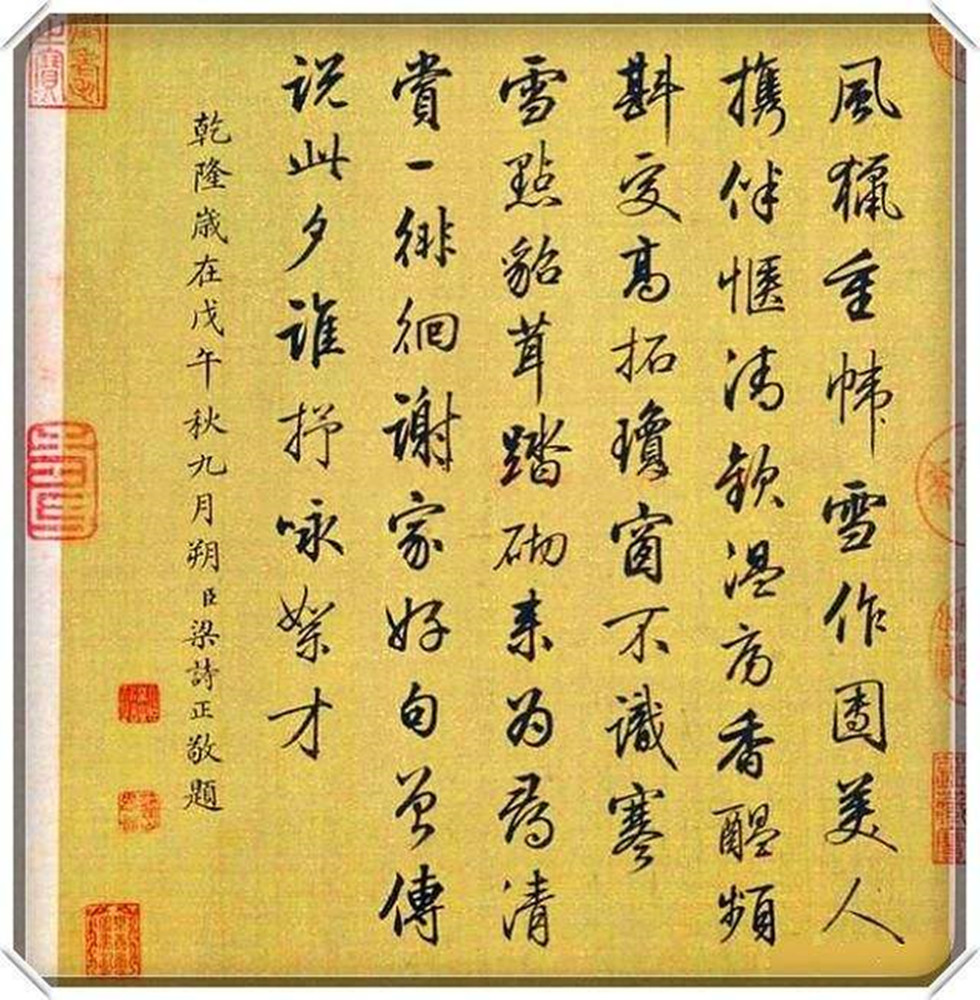 風獵重幃雪作團美人
攜伴愜清歡溫房香醞頻
斟交高拓瓊窗不識寒
雪點貂茸踏砌來為尋清
賞一徘徊謝家好句曾傳
說此夕誰抒咏絮才
乾隆歲在戊午秋九月朔臣梁詩正敬題